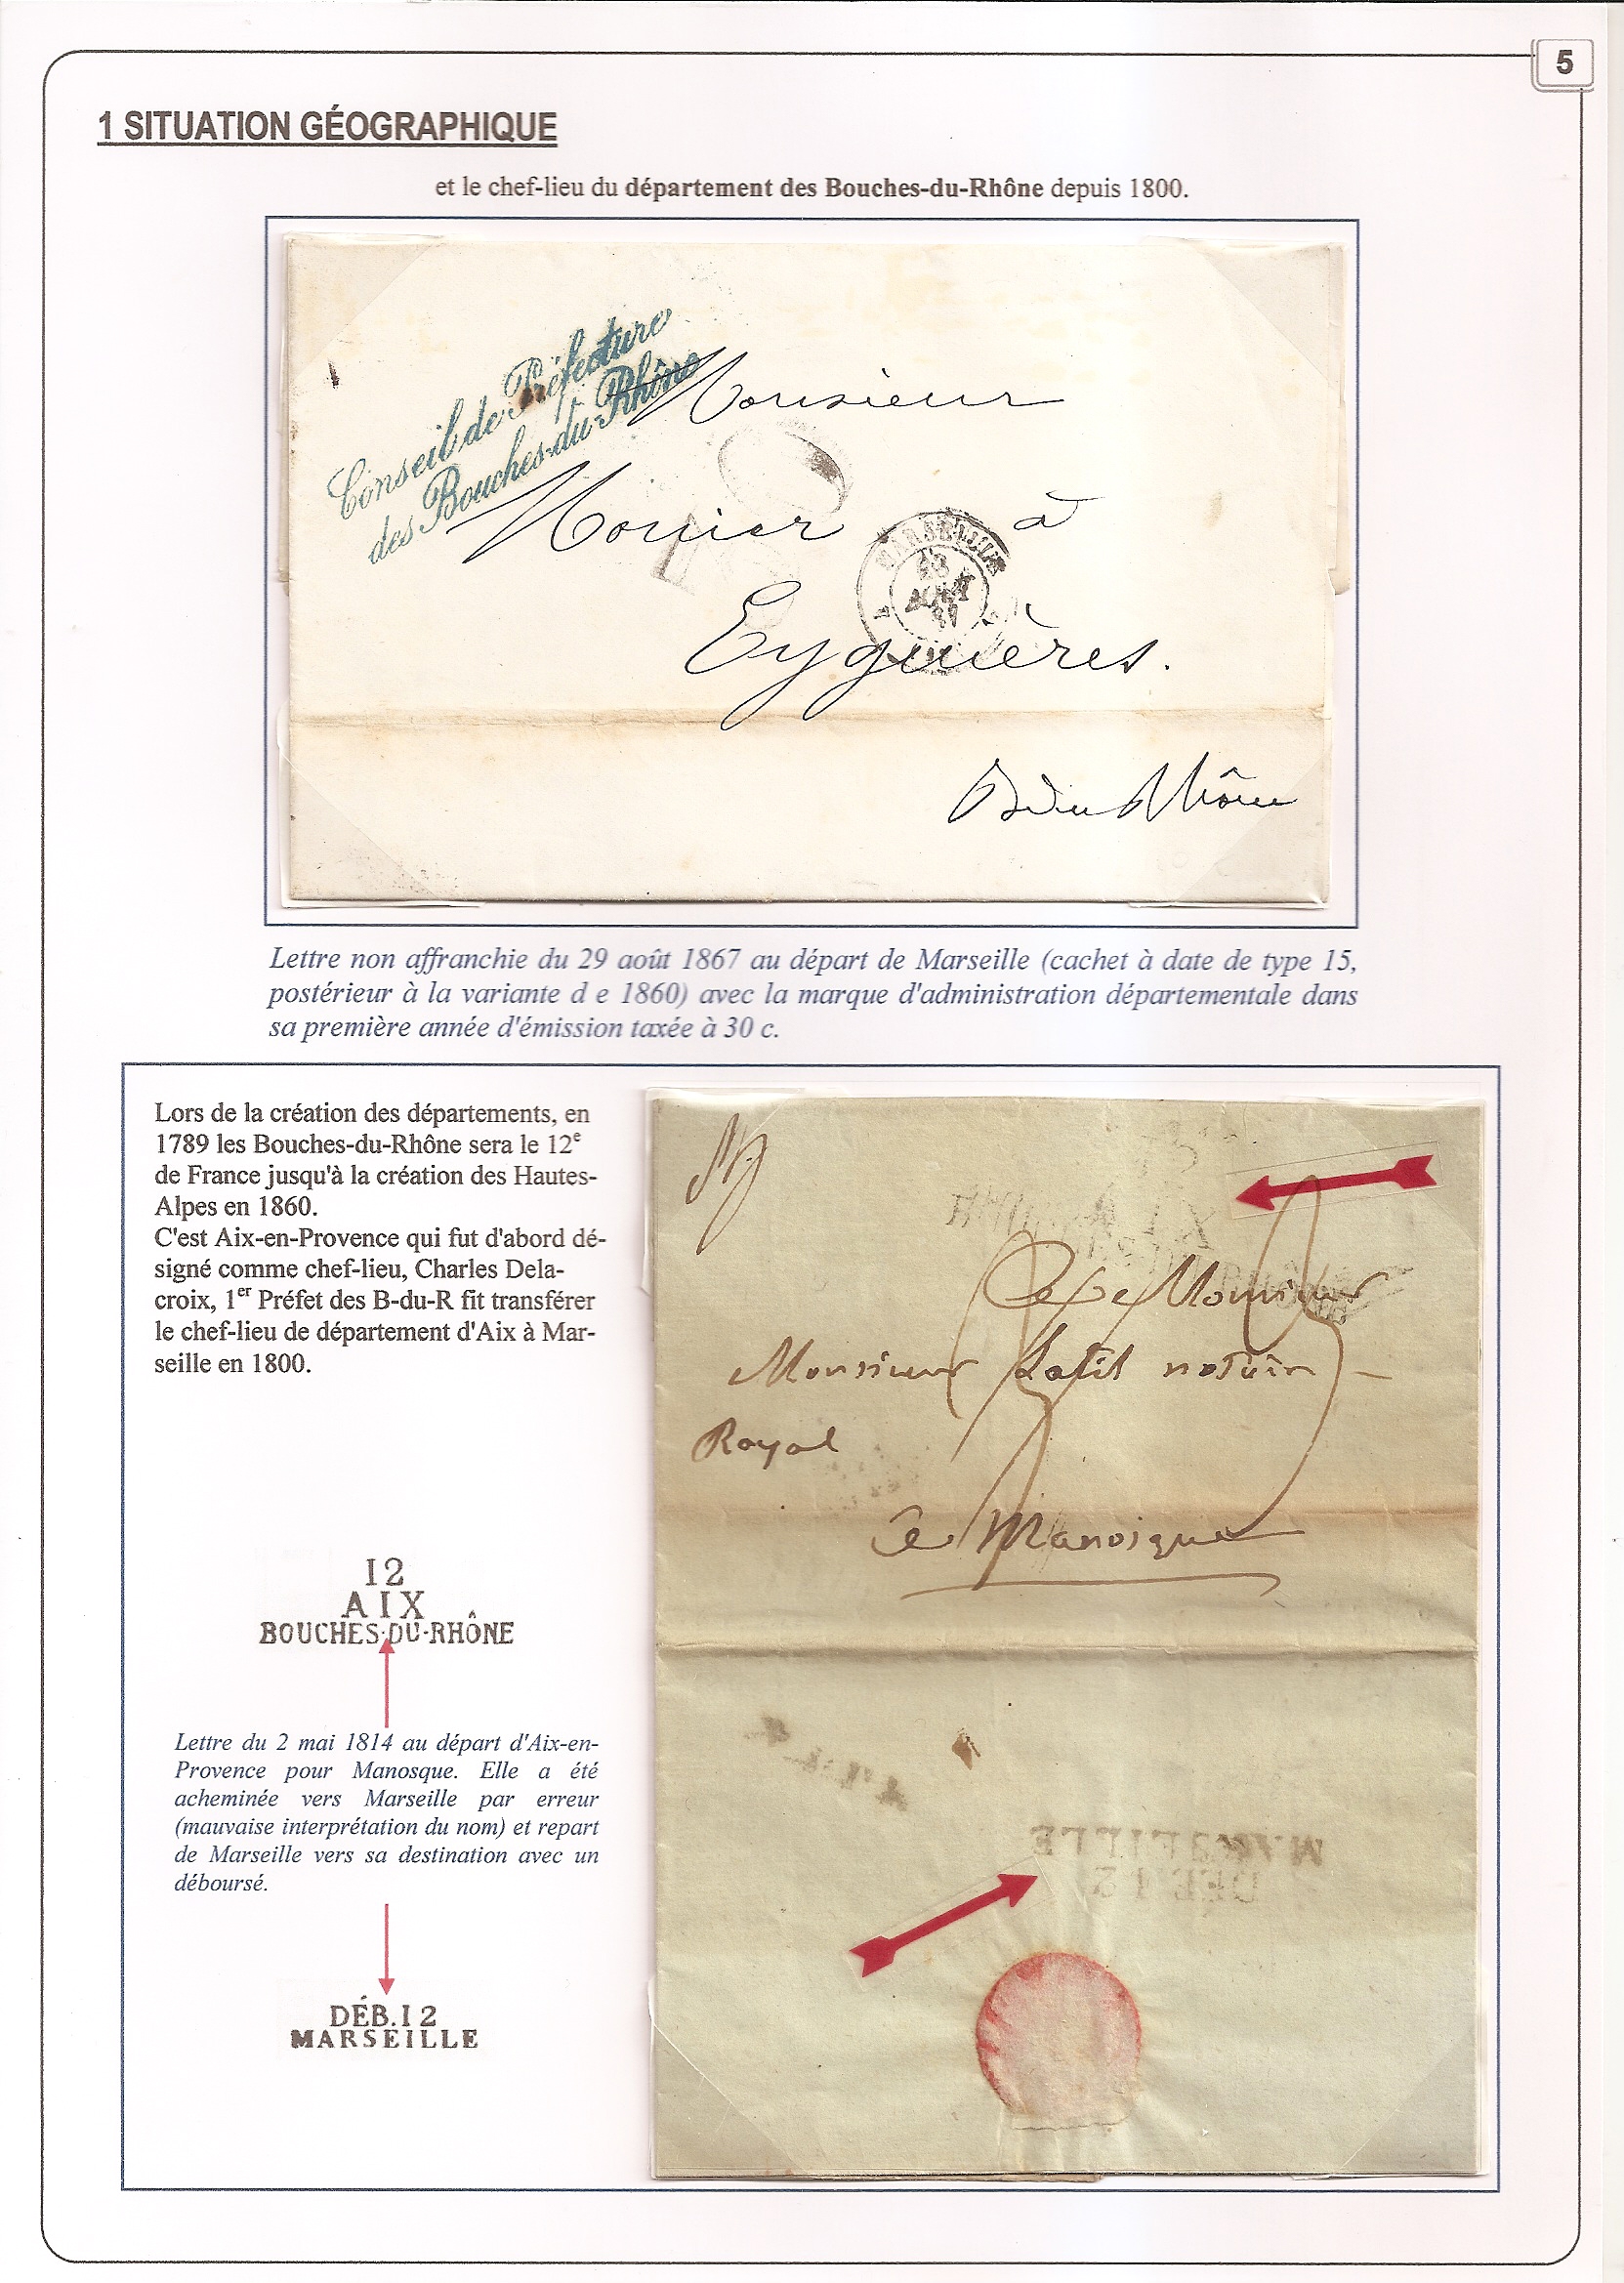 5
1 SITUATION GÉOGRAPHIQUE
et le chef-lieu du département des Bouches-du-Rhône depuis 1800.
Conseil de Préfecture
des Bouches-du-Rhône
Monsieur
Monier à
MARSEILLE
Eyguières.
Lettre non affranchie du 29 août 1867 au départ de Marseille (cachet à date de type 15,
postérieur à la variante d e 1860) avec la marque d'administration départementale dans
sa première année d'émission taxée à 30 c.
Lors de la création des départements, en
1789 les Bouches-du-Rhône sera le 12e
de France jusqu'à la création des Hautes-
Alpes en 1860.
C'est Aix-en-Provence qui fut d'abord dé-
signé comme chef-lieu, Charles Dela-
croix, 1er Préfet des B-du-R fit transférer
le chef-lieu de département d'Aix à Mar-
seille en 1800.
12
AIX
BOUCHES-DU-RHÔNE
Lettre du 2 mai 1814 au départ d'Aix-en-
Provence pour Manosque. Elle a été
acheminée vers Marseille par erreur
(mauvaise interprétation du nom) et repart
de Marseille vers sa destination avec un
déboursé.
DÉB.12
MARSEILLE
AIX
Monsieur
Monsieur notaire
Royal
à Manosque
DÉB.12
MARSEILLE